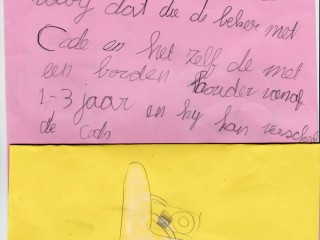 dat die de beker met
Code en het zelf de met
een borden houder vanaf
1-3 jaar en hy kan versch
de Code